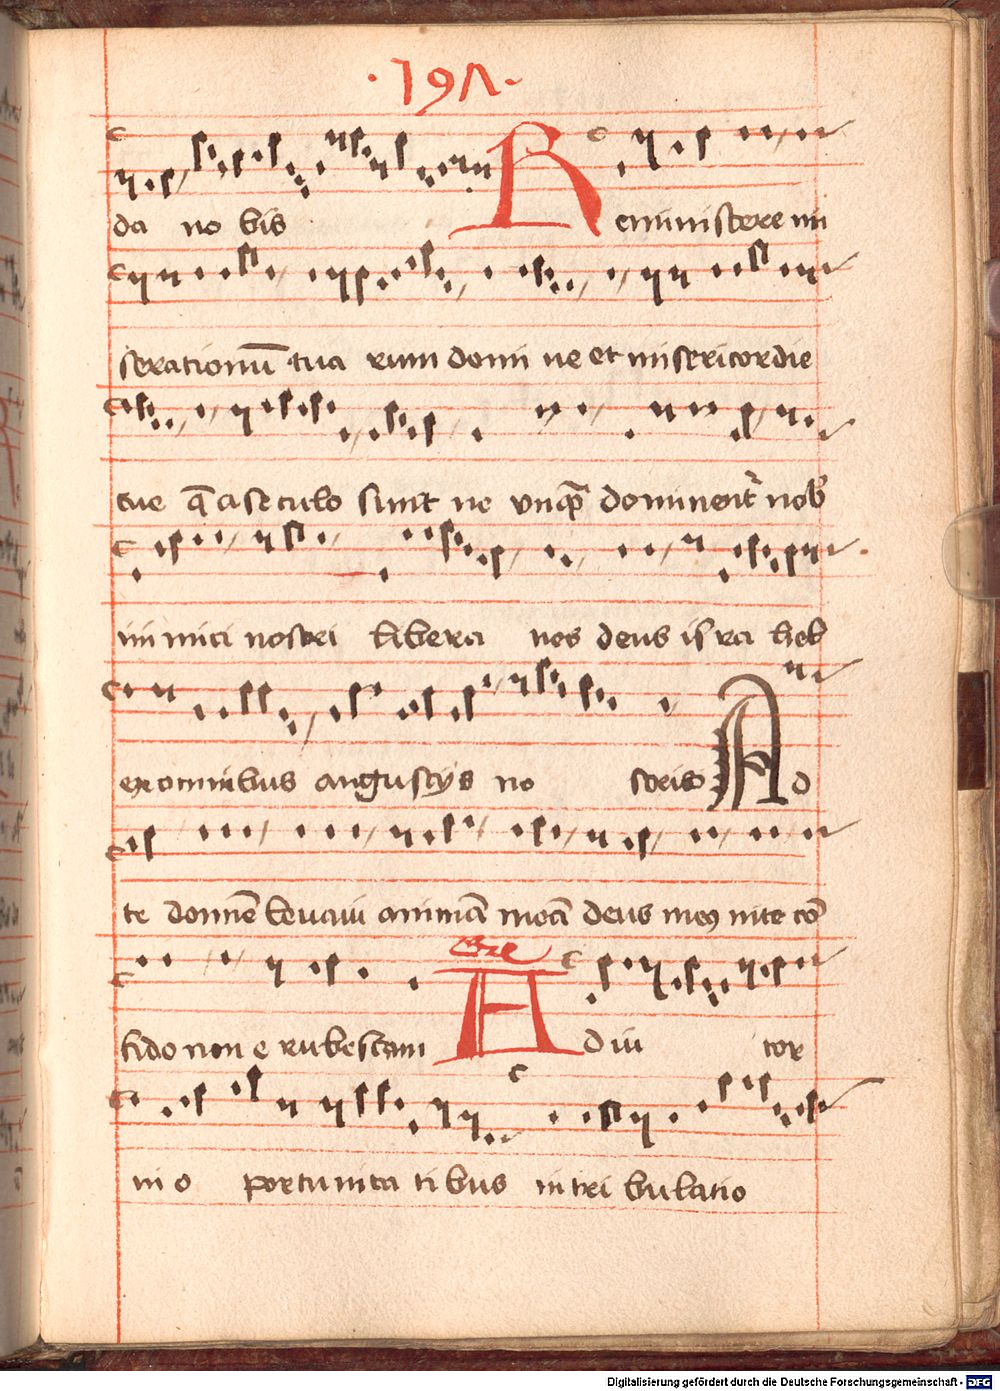 ·197·
da no bis Reminiscere mi
serationū tua rum domi ne et misericordie
tue q̄ a seculo sunt ne vnqꝫ dominent᷑ nob
in imici nostri libera nos deus isra hel
ex omnibus angustijs no stris Ad
te domīe levavi animā meā deus meꝰ in te cō
fido non e rubescam Gre Adiu tor
in o portunita ti bus in tri bulatio
Digitalisierung gefördert durch die Deutsche Forschungsgemeinschaft - DFG